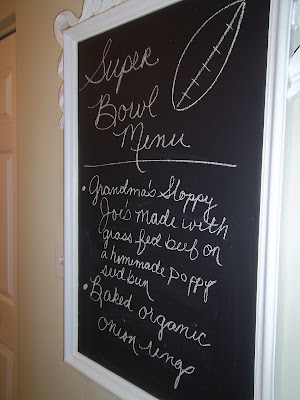 Super
Bowl
Menu
• Grandma's Sloppy
Joe's made with
grass fed beef on
a homemade poppy
seed bun
• Baked organic
onion rings